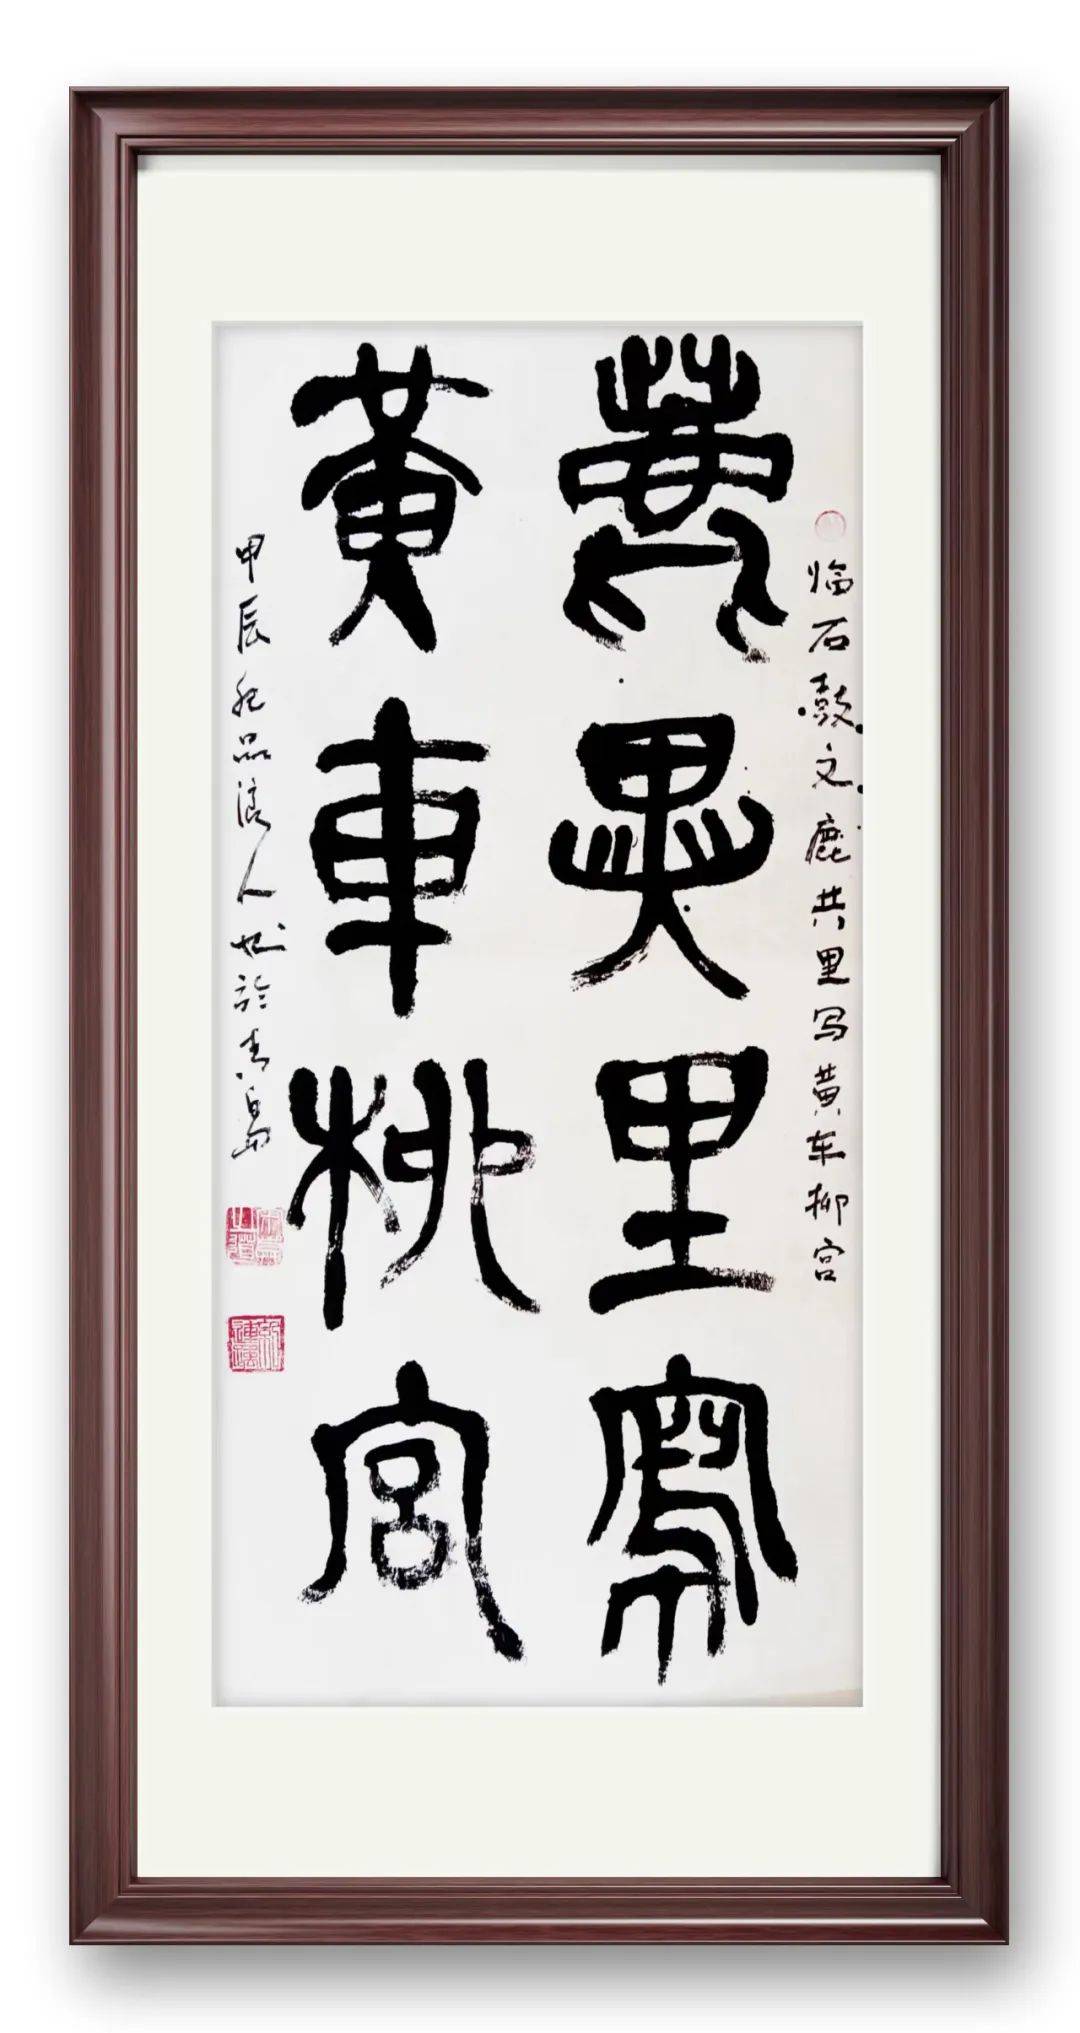 临石鼓文鹿共里写黄车柳宫
異里寫
黃車柳宮
甲辰秋品浪人书於青岛